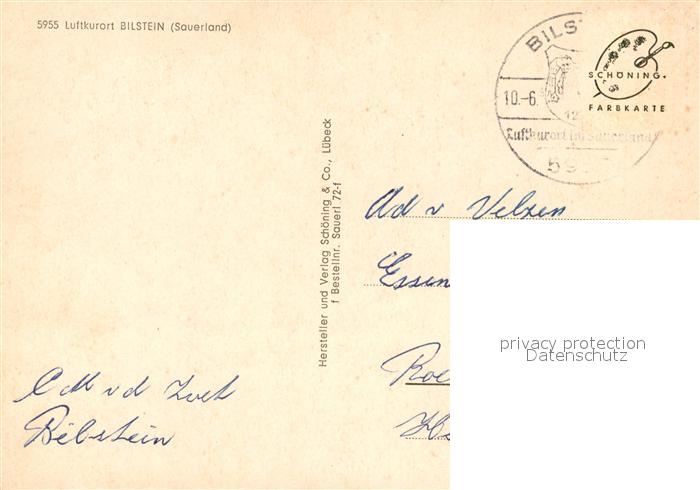 5955 Luftkurort BILSTEIN (Sauerland)
BILST
10.-6.
12
Luftkurort im Sauerland
59
SCHÖNING
FARBKARTE
Hersteller und Verlag Schöning & Co., Lübeck
f Bestellnr. Sauerl 72-f
Ad v Velzen
Essen
privacy protection
Datenschutz
C M v d
Bilstein